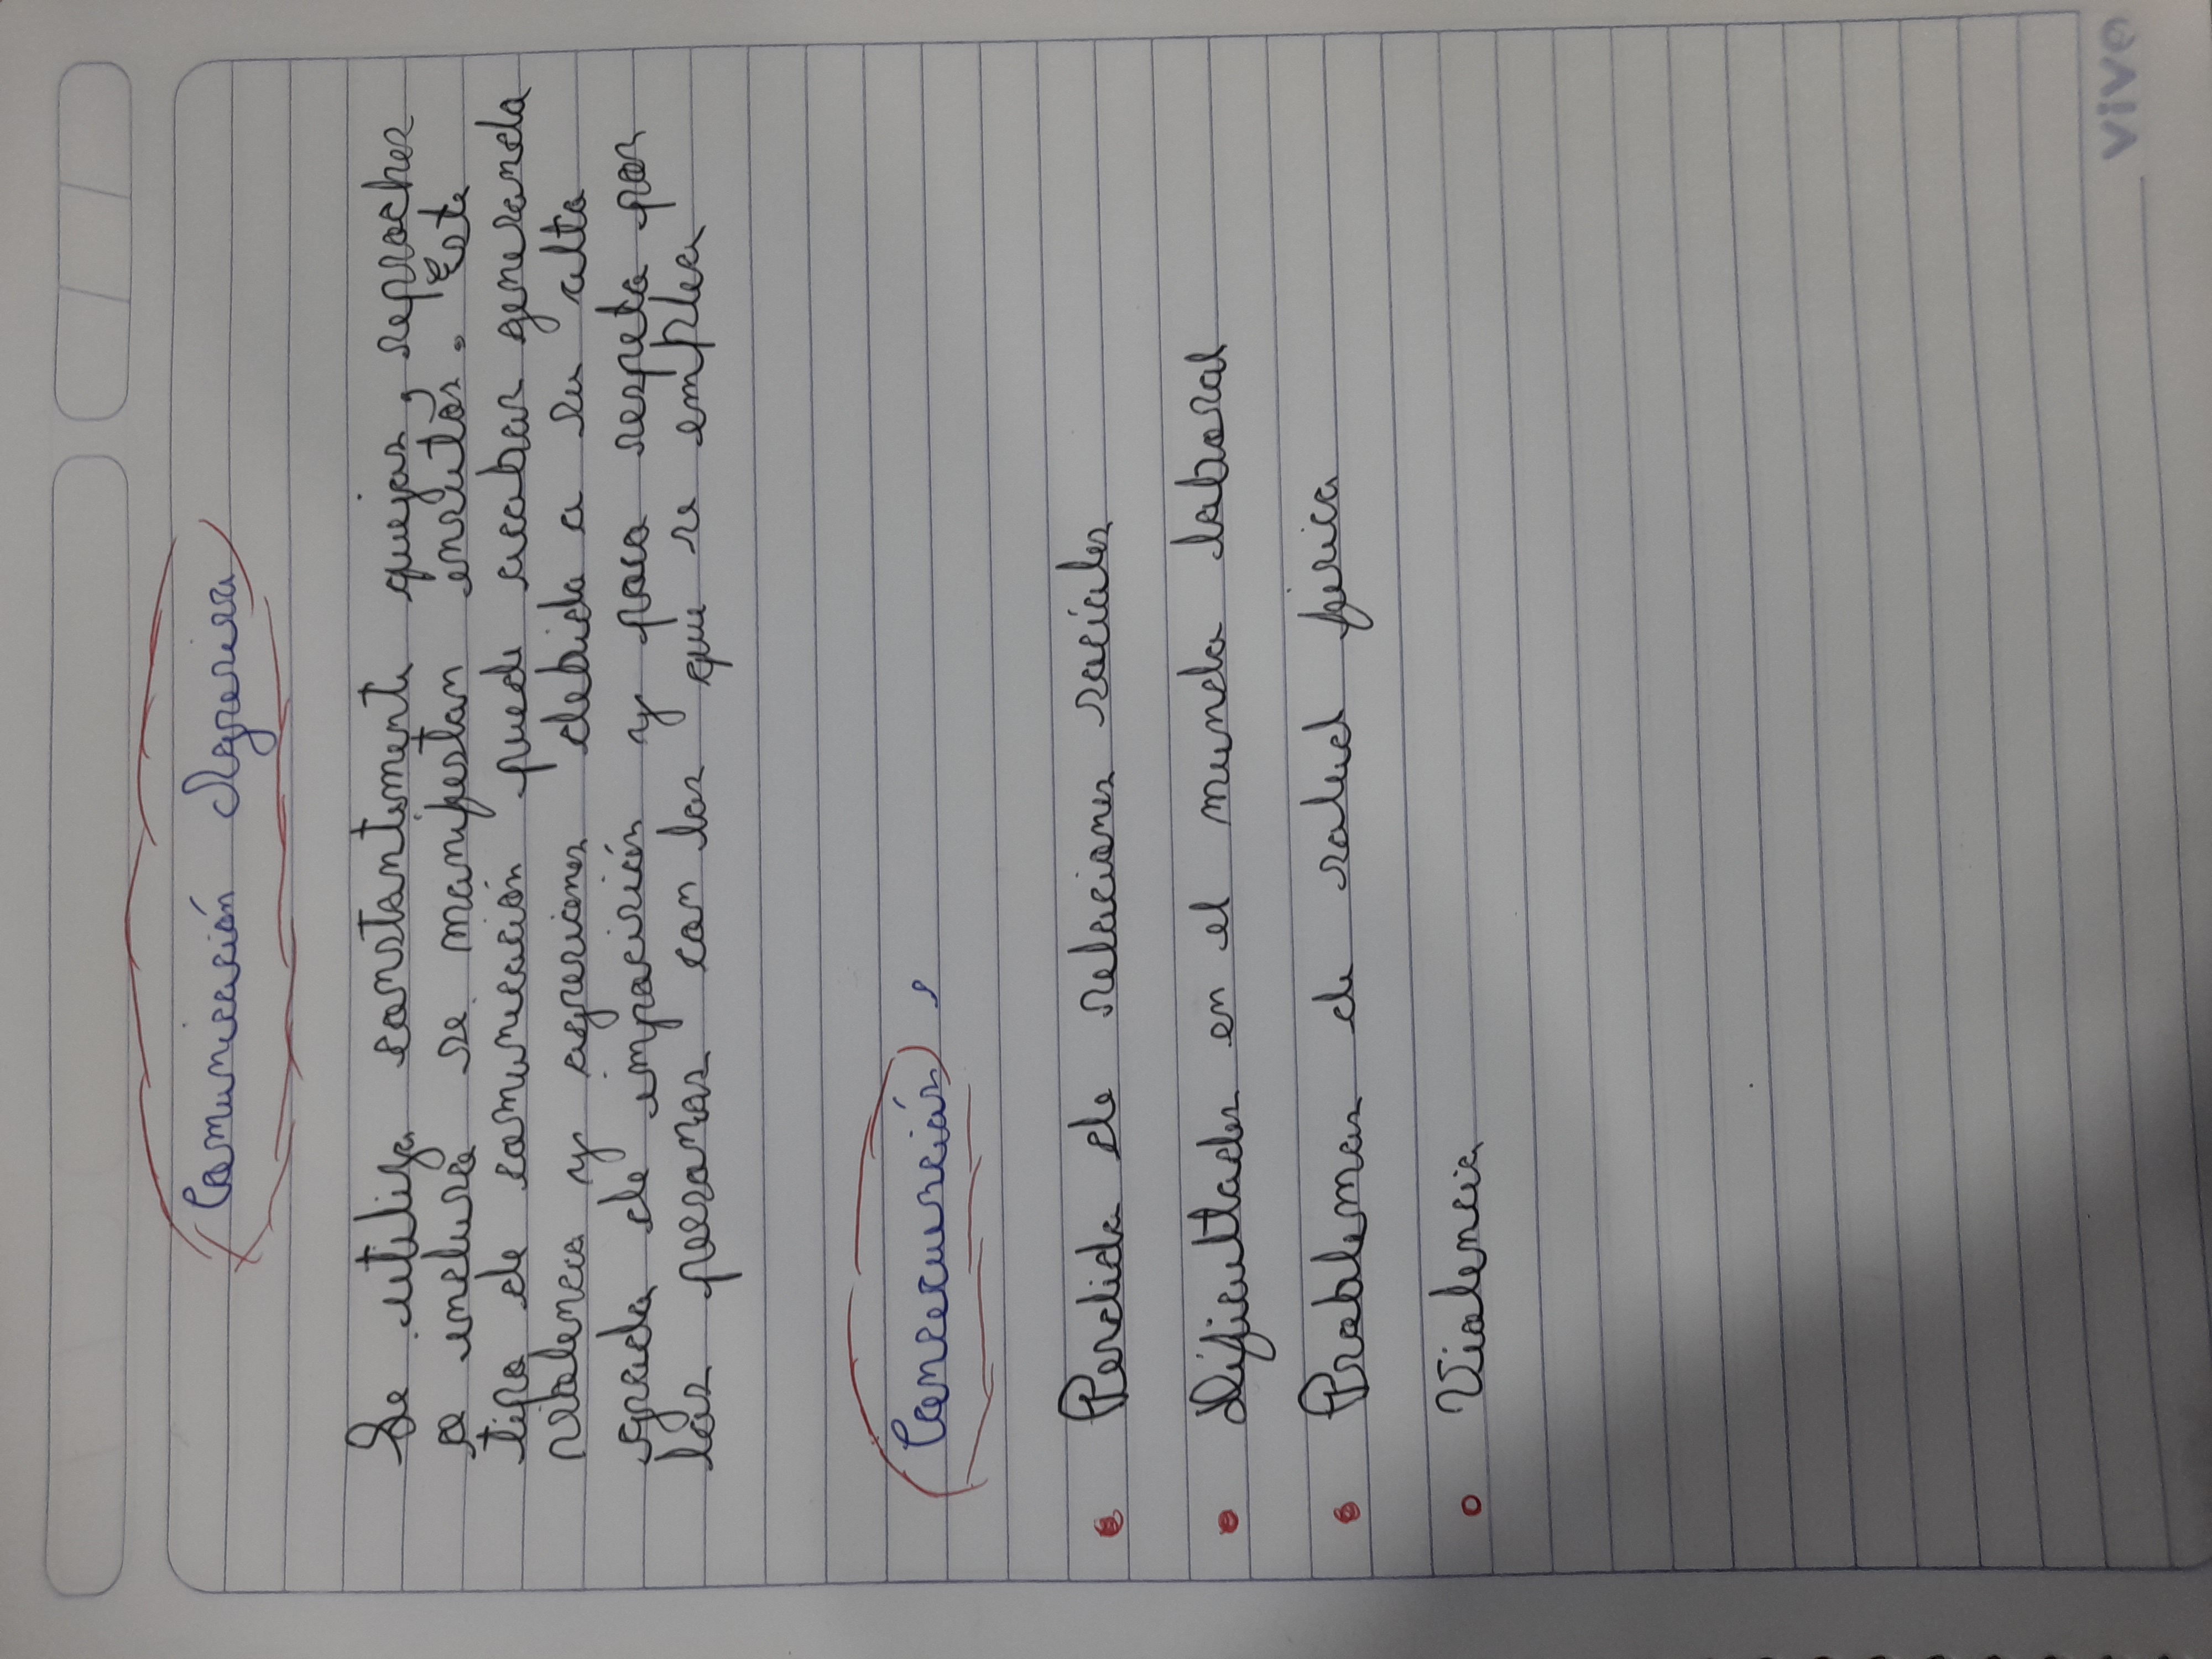 Comunicción Agresiva
Se utiliza constantemente quejas, reproches
e incluso se manifestan insultos. Este
tipo de comunicación puede acabar generando
violencia y agresiones debido a su alto
grado de imposición y poco respeto por
las personas con las que se emplea
Consecunción
Perdida de relaciones sociales
Dificultades en el mundo laboral
Problemas de salud fisica
Violencia
VIVO